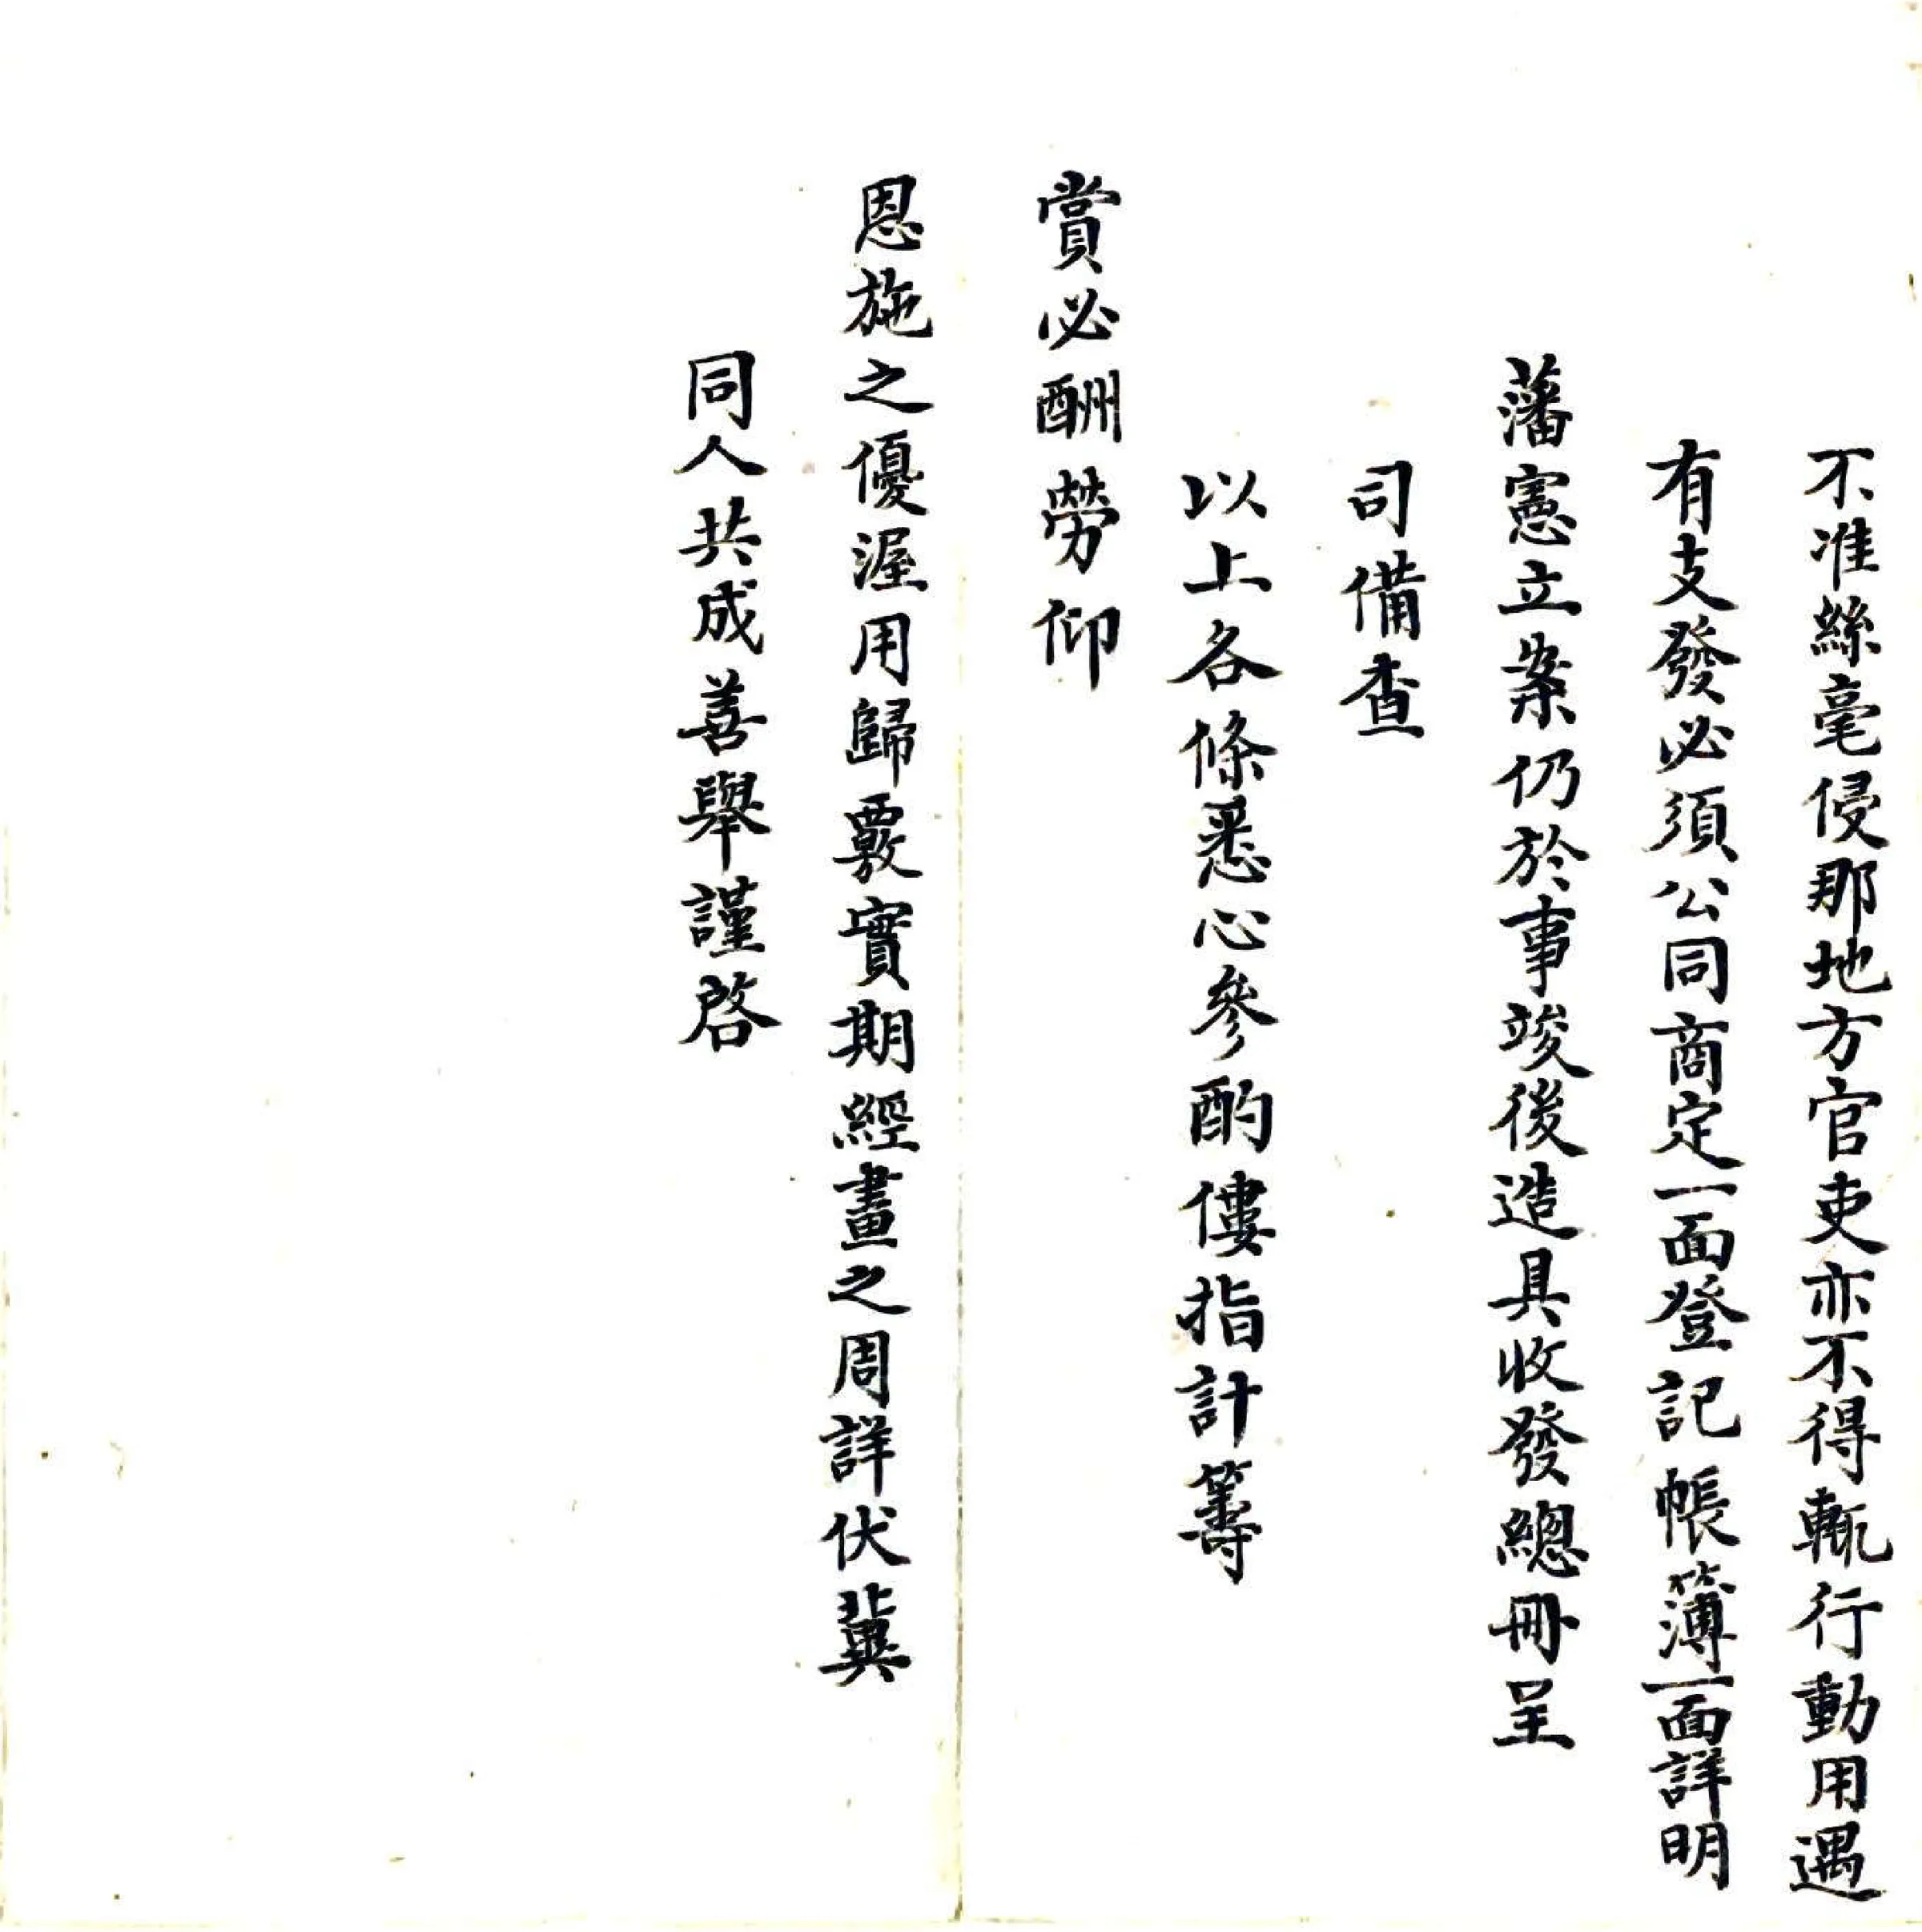 不准絲毫侵那地方官吏亦不得輒行動用遇
有支發必須公同商定一面登記帳簿一面詳明
藩憲立案仍於事竣後造具收發總冊呈
司備查
以上各條悉心參酌僂指計籌
賞必酬勞仰
恩施之優渥用歸覈實期經畫之周詳伏冀
同人共成善舉謹啓